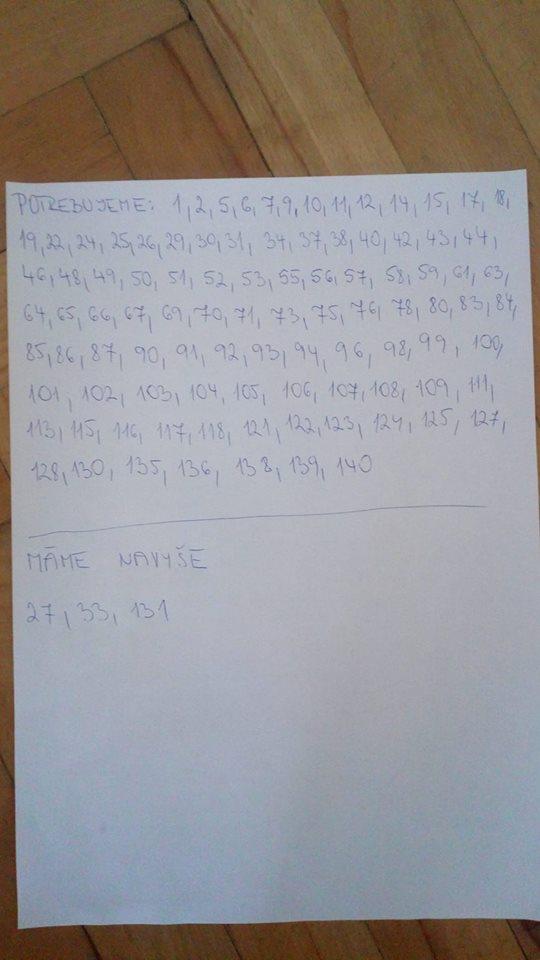 POTREBUJEME: 1, 2, 5, 6, 7, 9, 10, 11, 12, 14, 15, 17, 18,
19, 22, 24, 25, 26, 29, 30, 31, 34, 37, 38, 40, 42, 43, 44,
46, 48, 49, 50, 51, 52, 53, 55, 56, 57, 58, 59, 61, 63,
64, 65, 66, 67, 69, 70, 71, 73, 75, 76, 78, 80, 83, 84,
85, 86, 87, 90, 91, 92, 93, 94, 96, 98, 99, 100,
101, 102, 103, 104, 105, 106, 107, 108, 109, 111,
113, 115, 116, 117, 118, 121, 122, 123, 124, 125, 127,
128, 130, 135, 136, 138, 139, 140
MÁME NAVYŠE
27, 33, 131